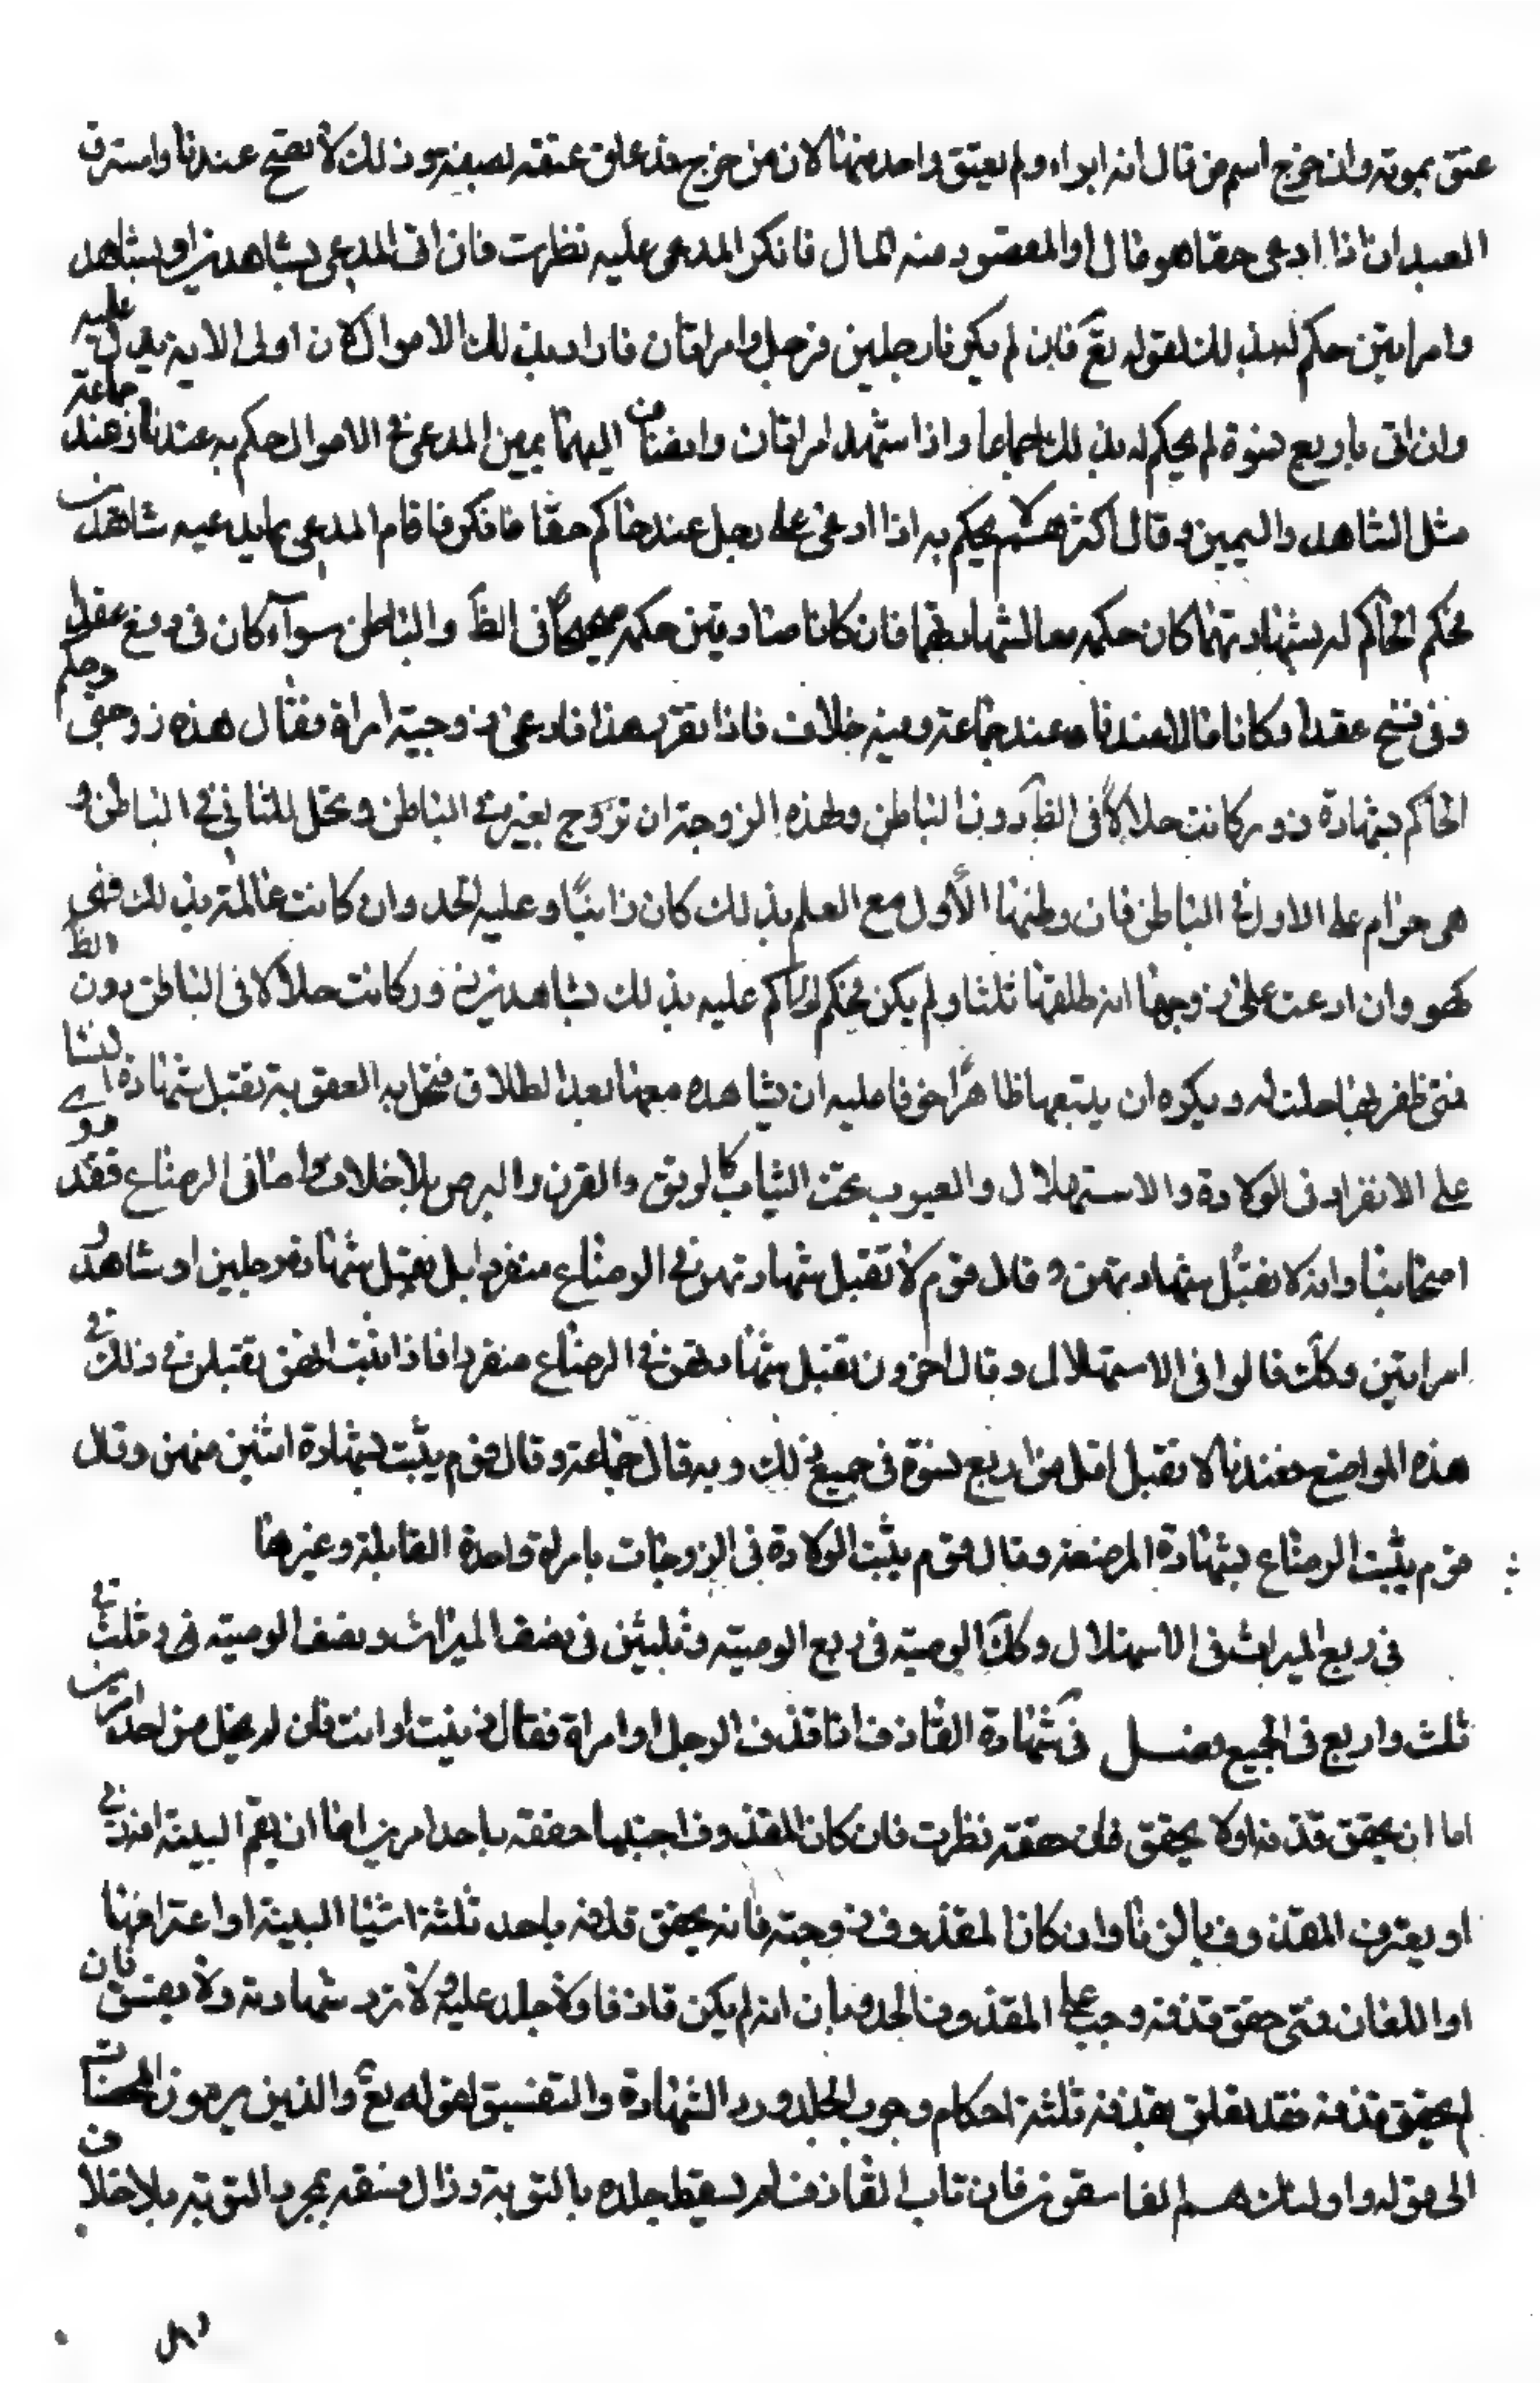 عتق بموته وان خرج اسم من قال انه ابراه ولم يعتق واحد منهما لان من خرج قد علق عتقه بصفة وذلك لا يصح عندنا واسترق
العبدان اذا ادعى حقا هو مال او المقصود منه المال فانكر المدعى عليه نظرت فان اتى المدعى بشاهدين او بشاهد
وامراتين حكم له بذلك لقوله تع فان لم يكونا رجلين فرجل وامراتان فاراد بذلك الاموال لان اولى الاية يدل عليه
وان اتى باربع نسوة لم يحكم له بذلك اجماعا واذا شهد امراتان وانضاف اليهما يمين المدعى في الاموال حكم به عندنا وعند جماعة
مثل الشاهد واليمين وقال اكثرهم لا يحكم به اذا ادعى على رجل عند حاكم حقا فانكر فاقام المدعى بما يدعيه شاهدين
فحكم الحاكم له بشهادتهما كان حكمه معا لشهادتهما فان كانا صادقين حكمه صحيحا في الظ والباطن سوآء كان في رفع عقد او
وفى فسخ عقد او كانا مالا عندنا وعند جماعة وفيه خلاف فاذا تقرر هذا فادعى زوجية امراة فقال هذه زوجتى وحكم
الحاكم بشهادة زور كانت حلالا في الظ دون الباطن ولهذه الزوجة ان تزوج بغيره في الباطن وتحل للثاني في الباطن و
هى حرام على الاول في الباطن فان وطئها الأول مع العلم بذلك كان زانيا وعليه الحد وان كانت عالمة بذلك فهى
كهو وان ادعت على زوجها انه طلقها ثلثا ولم يكن فحكم الحاكم عليه بذلك بشاهدين زور كانت حلالا فى الباطن دون الظ
فمتى ظفر بها حلت له ويكره ان يتبعها ظاهرا خوفا عليه ان يشاهده معها بعد الطلاق فتحل به العقوبة تقبل شهادة النسا
على الانفراد فى الولادة والاستهلال والعيوب تحت الثياب كالرتق والقرن والبرص بلا خلاف واما فى الرضاع فقد روى
اصحابنا وانه لا تقبل شهادتهن وقال قوم لا تقبل شهادتهن في الرضاع منفردا بل تقبل شهادة رجلين او شاهد و
امراتين وكك قالوا فى الاستهلال وقال اخرون تقبل شهادتهن في الرضاع منفردا فاذا ثبت انهن يقبلن في ذلك في
هذه المواضع فعندنا لا تقبل اقل من اربع نسوة فى جميع ذلك وبه قال جماعة وقال قوم يثبت بشهادة اثنين منهن وقال
قوم يثبت الرضاع بشهادة المرضعة وقال قوم يثبت الولادة فى الزوجات بامراة واحدة القابلة وغيرها
فى ربع الميراث فى الاستهلال وكك الوصية فى ربع الوصية وثلثين فى نصف الميراث ونصف الوصية وثلث في
ثلث واربع فى الجميع فصل فى شهادة القاذف اذا قذف الرجل او امراة فقال زنيت او انت زان لم يخل من احد امرين
اما ان يحقق قذفه او لا يحقق فان حققه نظرت فان كان المقذوف اجنبيا حققه باحد امرين اما ان يقيم البينة انه زنى
او يعترف المقذوف بالزنا وان كان المقذوف زوجته فانه يحقق قذفه باحد ثلثة اشيا البينة او اعترافها
او اللعان فمتى حقق قذفه وجب على المقذوف الحد وبان انه لم يكن قاذفا ولا جلد عليه ولا ترد شهادته ولا يفسق فان
لم يحقق قذفه فقد تعلق بقذفه ثلثة احكام وجوب الجلد ورد الشهادة والتفسيق لقوله تع والذين يرمون المحصنات
الى قوله واولئك هم الفاسقون فان تاب القاذف لم يسقط جلده بالتوبة وزال فسقه بمجرد التوبة بلا خلاف